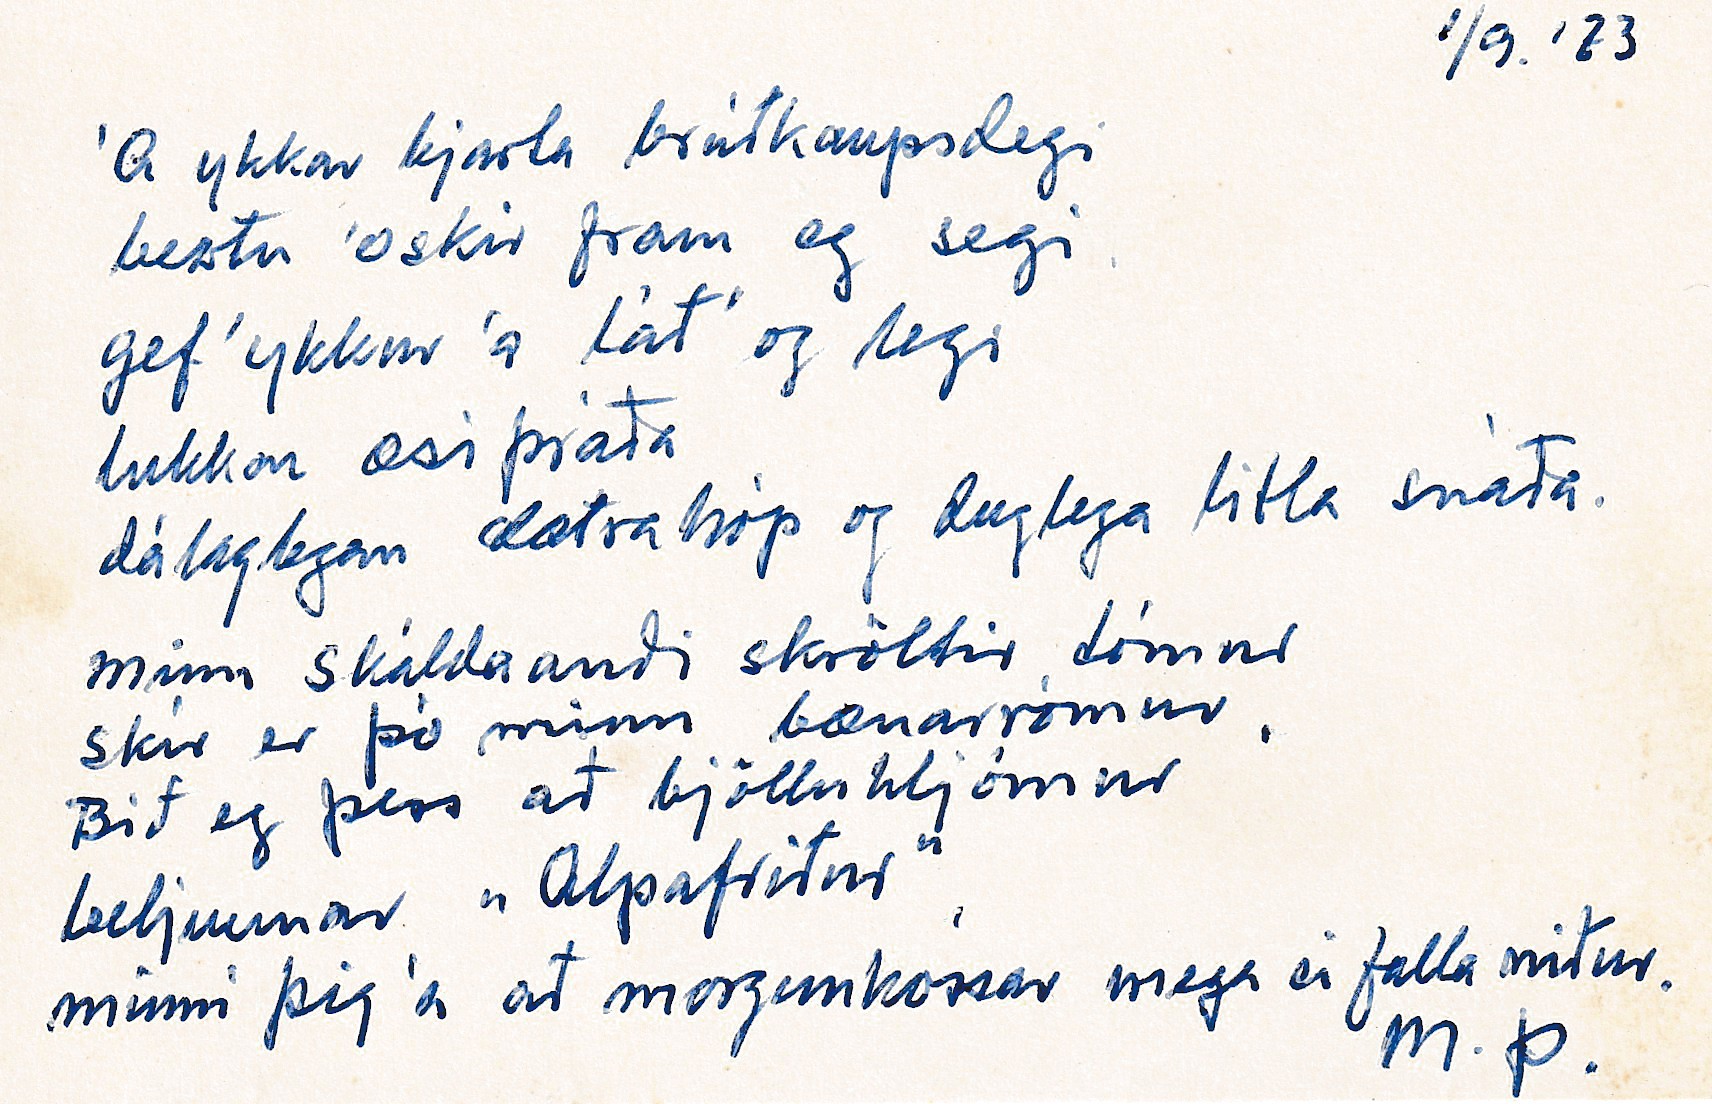 1/9. '73
Á ykkar bjarta brúðkaupsdegi
beztu óskir fram eg segi.
gef' ykkur á láð' og legi
lukkan æsi þráða
dálaglegan dætrahóp og duglega litla snáða.
minn skáldaandi skröltir tómur
skír er þó minn bænarrómur.
Bið eg þess að bjölluhljómur
beljunnar "Alpafriður",
minni þig á að morgunkossar mega ei falla niður.
M. Þ.